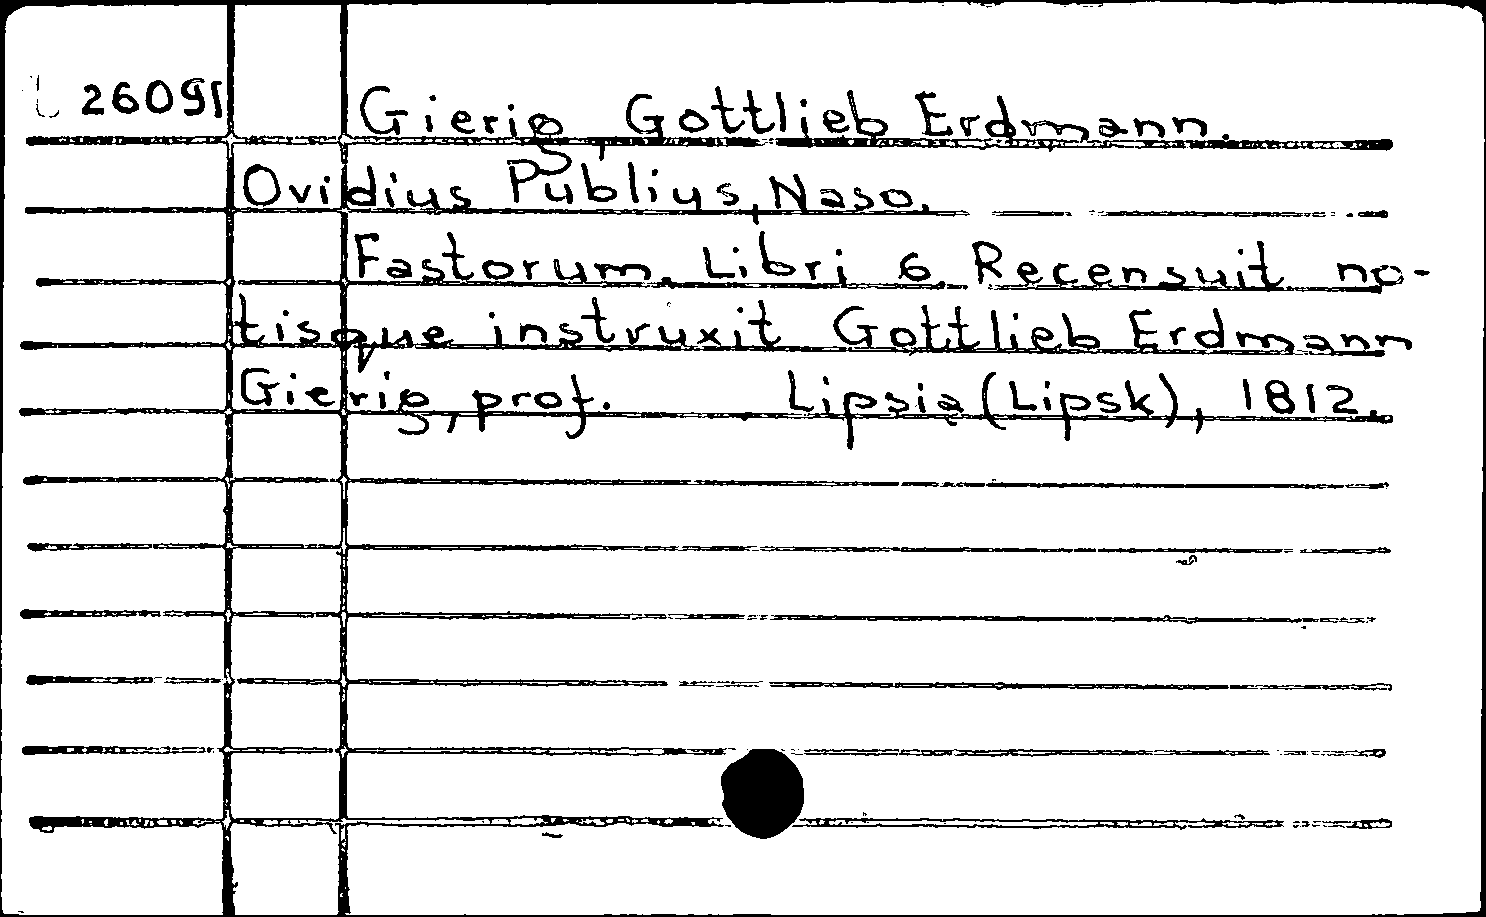 26091
Gierig, Gottlieb Erdmann.
Ovidius Publius, Naso.
Fastorum. Libri 6. Recensuit no-
tisque instruxit Gottlieb Erdmann
Gierig, prof. Lipsia (Lipsk), 1812.